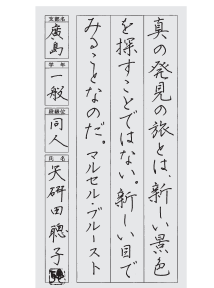 真の発見の旅とは、新しい景色
を探すことではない。新しい目で
みることなのだ。マルセル・プルースト
支部名
廣島
学年
一般
段級位
同人
氏名
田聰子